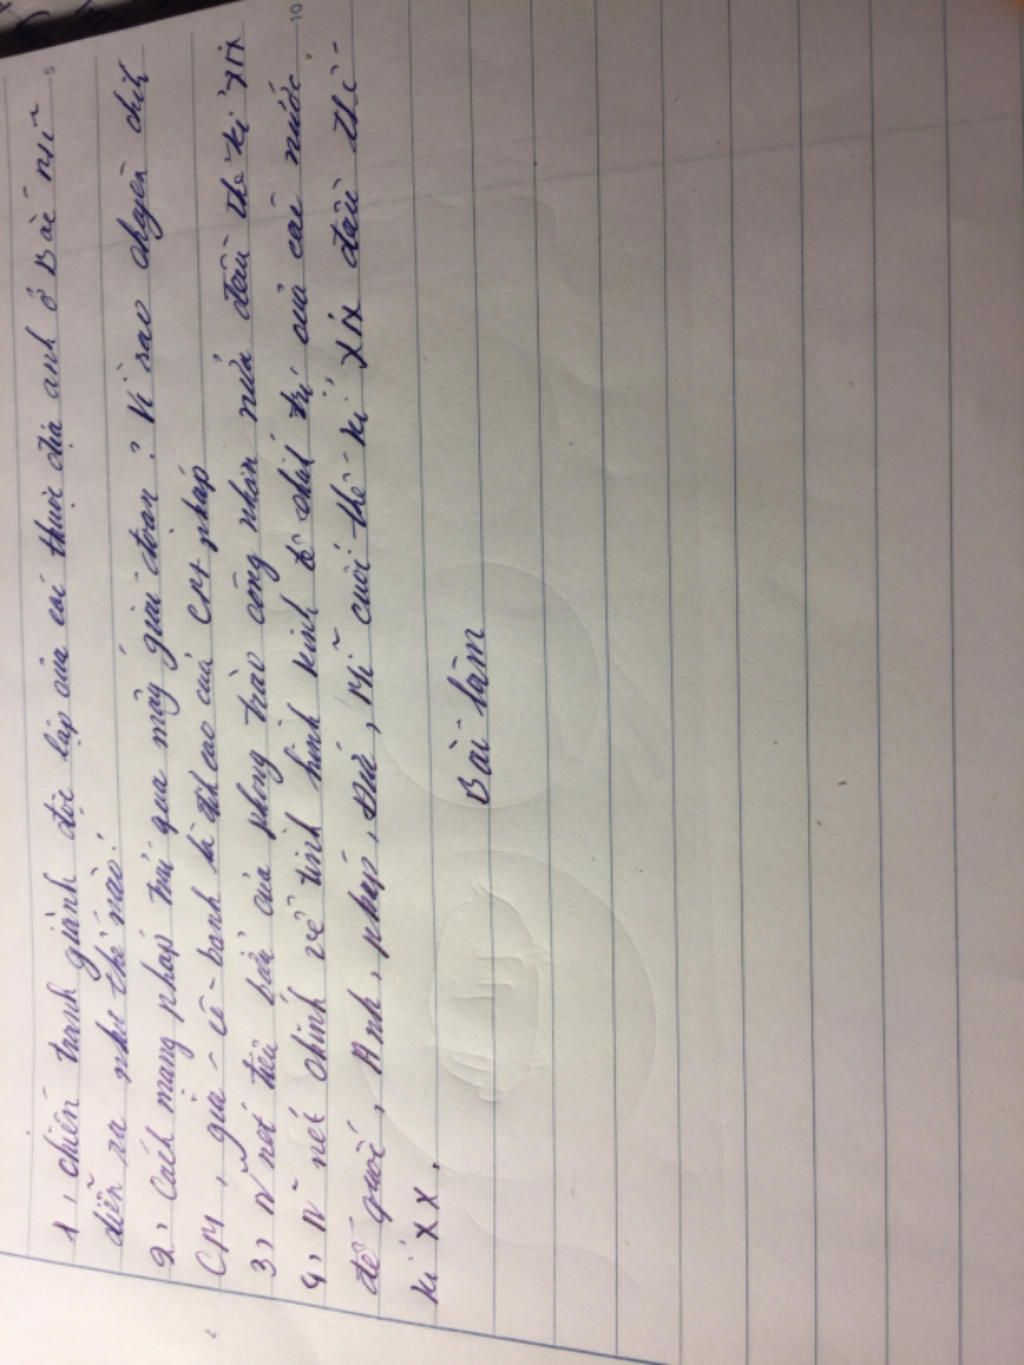 1, chiến tranh giành độc lập của các thuộc địa anh ở Bắc Mĩ
diễn ra như thế nào?
2, Cách mạng pháp trải qua mấy giai đoạn? Vì sao chuyên chính
CM, gia-cô-banh là đỉnh cao của CM pháp
3, N~ nét tiêu biểu của phong trào công nhân nửa đầu thế kỉ XIX
4, N~ nét chính về tình hình kinh tế chính trị của các nước
đế quốc, Anh, pháp, Đức, Mĩ cuối thế kỉ XIX đầu thế
kỉ XX.
Bài làm
5
10